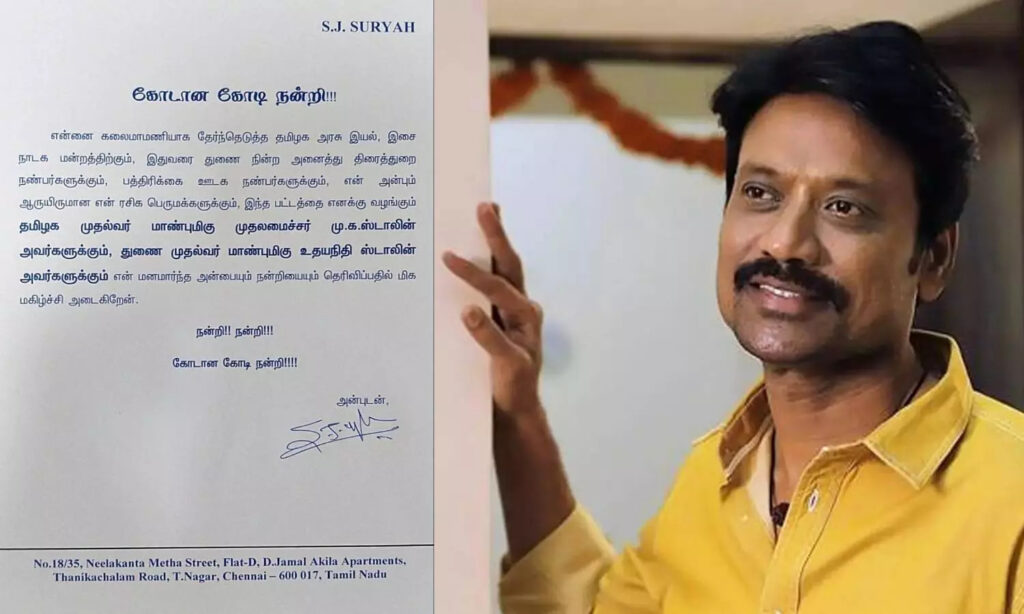 S.J. SURYAH
கோடான கோடி நன்றி!!!
என்னை கலைமாமணியாக தேர்ந்தெடுத்த தமிழக அரசு இயல், இசை
நாடக மன்றத்திற்கும், இதுவரை துணை நின்ற அனைத்து திரைத்துறை
நண்பர்களுக்கும், பத்திரிக்கை ஊடக நண்பர்களுக்கும், என் அன்பும்
ஆருயிருமான என் ரசிக பெருமக்களுக்கும், இந்த பட்டத்தை எனக்கு வழங்கும்
தமிழக முதல்வர் மாண்புமிகு முதலமைச்சர் மு.க.ஸ்டாலின்
அவர்களுக்கும், துணை முதல்வர் மாண்புமிகு உதயநிதி ஸ்டாலின்
அவர்களுக்கும் என் மனமார்ந்த அன்பையும் நன்றியையும் தெரிவிப்பதில் மிக
மகிழ்ச்சி அடைகிறேன்.
நன்றி!! நன்றி!!!
கோடான கோடி நன்றி!!!!
அன்புடன்,
No.18/35, Neelakanta Metha Street, Flat-D, D.Jamal Akila Apartments,
Thanikachalam Road, T.Nagar, Chennai – 600 017, Tamil Nadu